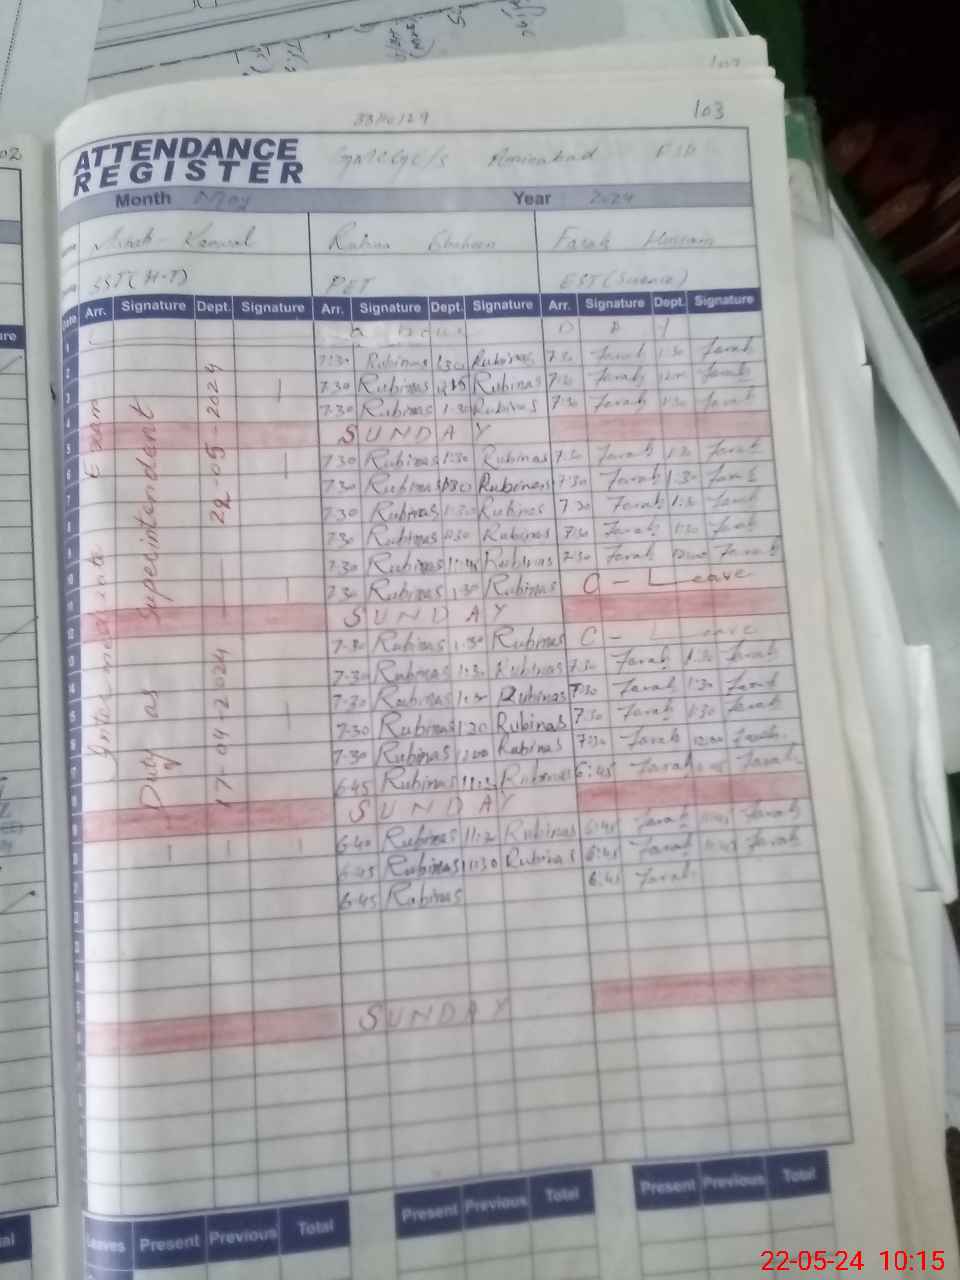 103
33110129
ATTENDANCE
REGISTER
Aminabad FSD
Month May Year 2024
Kanwal Rubina Shaheen Farah Hussain
SST (H-T) PET EST (Science)
Date Arr. Signature Dept. Signature Arr. Signature Dept. Signature Arr. Signature Dept. Signature
D A Y
7:30 Rubinas 1:30 Rubinas 7:30 Farah 1:30 Farah
7:30 Rubinas Rubinas 7:30 Farah Farah
7:30 Rubinas 1:30 Rubinas 7:30 Farah 1:30 Farah
SUNDAY
7:30 Rubinas 1:30 Rubinas 7:30 Farah 1:30 Farah
7:30 Rubinas 1:30 Rubinas 7:30 Farah 1:30 Farah
7:30 Rubinas 1:30 Rubinas 7:30 Farah 1:30 Farah
7:30 Rubinas Rubinas 7:30 Farah 1:30 Farah
7:30 Rubinas Rubinas 7:30 Farah 12:00 Farah
7:30 Rubinas 1:30 Rubinas C - Leave
SUNDAY
7:30 Rubinas 1:30 Rubinas C - Leave
7:30 Rubinas 1:30 Rubinas 7:30 Farah 1:30 Farah
7:30 Rubinas 1:30 Rubinas 7:30 Farah 1:30 Farah
7:30 Rubinas Rubinas 7:30 Farah 1:30 Farah
7:30 Rubinas 12:00 Rubinas 7:30 Farah 12:00 Farah
6:45 Rubinas Rubinas 6:45 Farah Farah
SUNDAY
6:40 Rubinas Rubinas 6:45 Farah Farah
6:45 Rubinas 11:30 Rubinas 6:45 Farah Farah
6:45 Rubinas 6:45 Farah
SUNDAY
Intermediate Exam
Duty as Superintendent
17-04-2024 — 22-05-2024
Leaves Present Previous Total Present Previous Total Present Previous Total
22-05-24 10:15